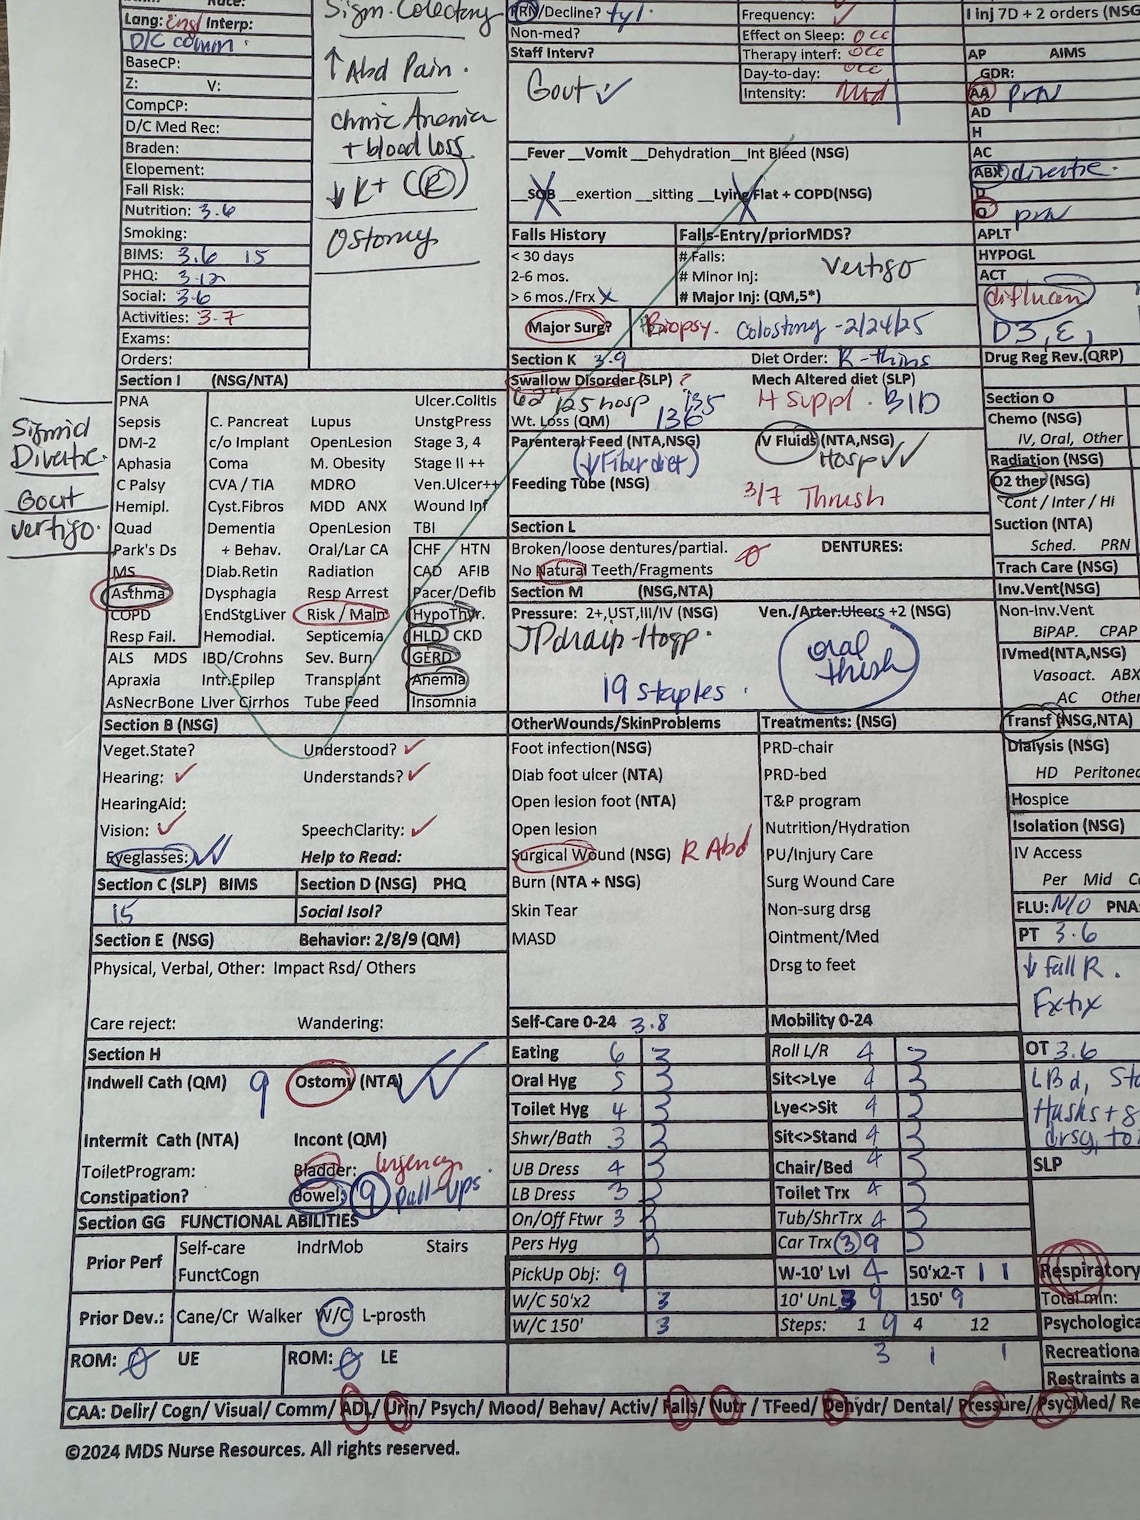 Lang: Engl Interp:
D/C comm.
BaseCP:
Z: V:
CompCP:
D/C Med Rec:
Braden:
Elopement:
Fall Risk:
Nutrition: 3.6
Smoking:
BIMS: 3.6 15
PHQ: 3-12
Social: 3-6
Activities: 3-7
Exams:
Orders:
Sigm. Colectomy
↑ Abd Pain.
chronic Anemia
+ blood loss
↓ K+ (R)
Ostomy
PRN/Decline? tyl.
Non-med?
Staff Interv?
Gout ✓
Frequency: ✓
Effect on Sleep: occ
Therapy interf: occ
Day-to-day: occ
Intensity: Mod
__Fever __Vomit __Dehydration__Int Bleed (NSG)
__SOB __exertion __sitting __Lying/Flat + COPD(NSG)
Falls History
< 30 days
2-6 mos.
> 6 mos./Frx X
Falls-Entry/priorMDS?
# Falls:
Vertigo
# Minor Inj:
# Major Inj: (QM,5*)
Major Surg? Biopsy. Colostomy - 2/24/25
Section K 3.9 Diet Order: R-thins
Swallow Disorder (SLP) ? Mech Altered diet (SLP)
62" 125 hosp 135 H Suppl. BID
Wt. Loss (QM) 136
Parenteral Feed (NTA,NSG) IV Fluids (NTA,NSG)
(↓ Fiber diet) Hosp ✓✓
Feeding Tube (NSG)
3/7 Thrush
Section L
Broken/loose dentures/partial. DENTURES:
No Natural Teeth/Fragments
Section M (NSG,NTA)
Pressure: 2+,UST,III/IV (NSG) Ven./Arter.Ulcers +2 (NSG)
JP drain - Hosp.
oral
thrush
19 staples.
I inj 7D + 2 orders (NSG
AP AIMS
GDR:
AA prn
AD
H
AC
ABX divertic.
D
O prn
APLT
HYPOGL
ACT
diflucan
D3, E,
Drug Reg Rev.(QRP)
Section O
Chemo (NSG)
IV, Oral, Other
Radiation (NSG)
O2 ther (NSG)
Cont / Inter / Hi
Suction (NTA)
Sched. PRN
Trach Care (NSG)
Inv.Vent(NSG)
Non-Inv.Vent
BiPAP. CPAP
IVmed(NTA,NSG)
Vasoact. ABX
AC Other
Transf (NSG,NTA)
Dialysis (NSG)
HD Peritone
Hospice
Isolation (NSG)
IV Access
Per Mid C
FLU: N/O PNA:
PT 3.6
↓ Fall R.
Fx hx
OT 3.6
LBd,
SLP
Respiratory
Total min:
Psychologica
Recreationa
Restraints a
Sigmoid
Divertic.
Gout
Vertigo.
Section I (NSG/NTA)
PNA Ulcer.Colitis
Sepsis C. Pancreat Lupus UnstgPress
DM-2 c/o Implant OpenLesion Stage 3, 4
Aphasia Coma M. Obesity Stage II ++
C Palsy CVA / TIA MDRO Ven.Ulcer++
Hemipl. Cyst.Fibros MDD ANX Wound Inf
Quad Dementia OpenLesion TBI
Park's Ds + Behav. Oral/Lar CA CHF HTN
MS Diab.Retin Radiation CAD AFIB
Asthma Dysphagia Resp Arrest Pacer/Defib
COPD EndStgLiver Risk / Maln HypoThyr.
Resp Fail. Hemodial. Septicemia HLD CKD
ALS MDS IBD/Crohns Sev. Burn GERD
Apraxia Intr.Epilep Transplant Anemia
AsNecrBone Liver Cirrhos Tube Feed Insomnia
Section B (NSG)
Veget.State? Understood? ✓
Hearing: ✓ Understands? ✓
HearingAid:
Vision: ✓ SpeechClarity: ✓
Eyeglasses: ✓✓ Help to Read:
Section C (SLP) BIMS Section D (NSG) PHQ
15 Social Isol?
Section E (NSG) Behavior: 2/8/9 (QM)
Physical, Verbal, Other: Impact Rsd/ Others
Care reject: Wandering:
OtherWounds/SkinProblems
Foot infection(NSG)
Diab foot ulcer (NTA)
Open lesion foot (NTA)
Open lesion
Surgical Wound (NSG) R Abd
Burn (NTA + NSG)
Skin Tear
MASD
Treatments: (NSG)
PRD-chair
PRD-bed
T&P program
Nutrition/Hydration
PU/Injury Care
Surg Wound Care
Non-surg drsg
Ointment/Med
Drsg to feet
Section H
Indwell Cath (QM) 9 Ostomy (NTA) ✓✓
Intermit Cath (NTA) Incont (QM)
ToiletProgram: Bladder: Urgency.
Constipation? Bowel: 9 Pull-Ups
Section GG FUNCTIONAL ABILITIES
Prior Perf Self-care IndrMob Stairs
FunctCogn
Prior Dev.: Cane/Cr Walker W/C L-prosth
ROM: 0 UE ROM: 0 LE
Self-Care 0-24 3.8 Mobility 0-24
Eating 6 3 Roll L/R 4 3
Oral Hyg 5 3 Sit<>Lye 4 3
Toilet Hyg 4 3 Lye<>Sit 4 3
Shwr/Bath 3 3 Sit<>Stand 4 3
UB Dress 4 3 Chair/Bed 4 3
LB Dress 3 3 Toilet Trx 4 3
On/Off Ftwr 3 3 Tub/ShrTrx 4 3
Pers Hyg 3 Car Trx 3 9 3
PickUp Obj: 9 W-10' Lvl 4 50'x2-T 1 1
W/C 50'x2 3 10' UnL 3 9 150' 9
W/C 150' 3 Steps: 1 9 4 12
3 1 1
CAA: Delir/ Cogn/ Visual/ Comm/ ADL/ Urin/ Psych/ Mood/ Behav/ Activ/ Falls/ Nutr / TFeed/ Dehydr/ Dental/ Pressure/ PsycMed/ Re
©2024 MDS Nurse Resources. All rights reserved.